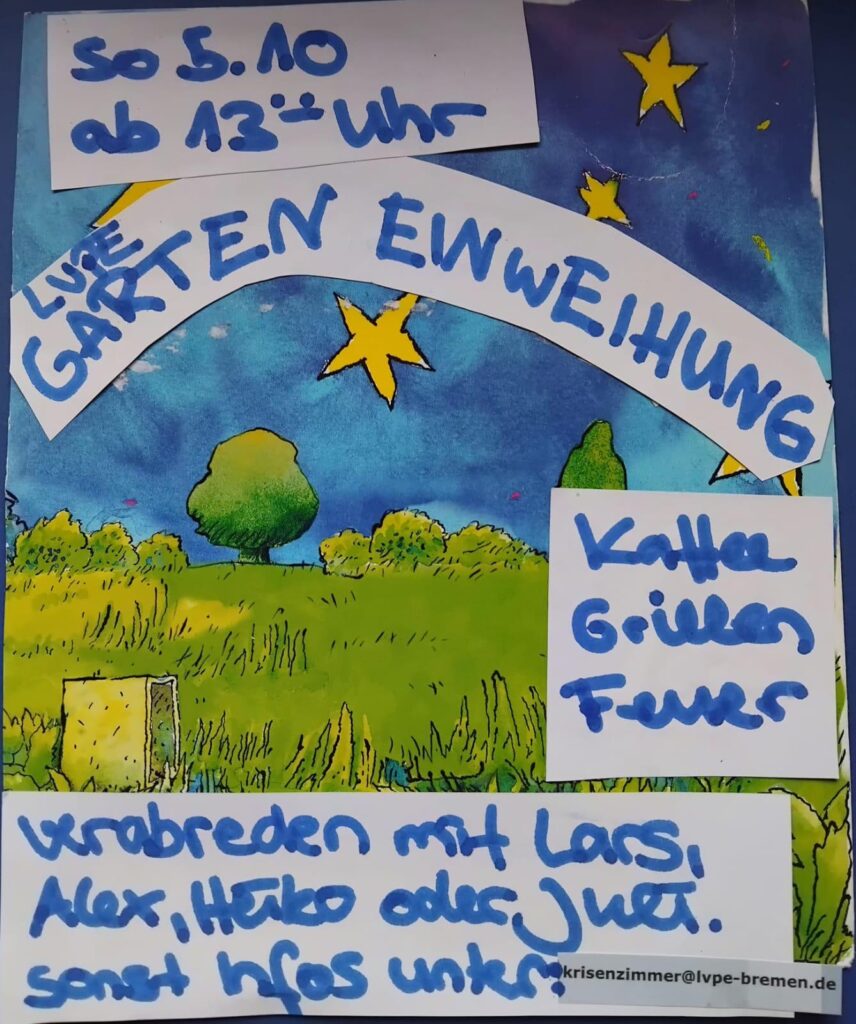 So 5.10
ab 13 Uhr
LVPE
GARTEN EINWEIHUNG
Kaffee
Grillen
Feuer
verabreden mit Lars,
Alex, Heiko oder Juli.
sonst Infos unter:
krisenzimmer@lvpe-bremen.de